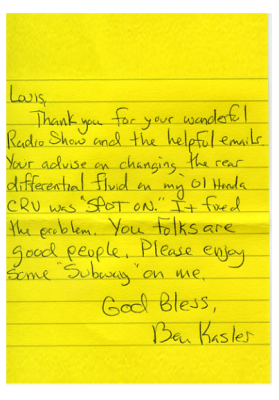 Louis,
Thank you for your wonderful
Radio Show and the helpful emails.
Your advise on changing the rear
differential fluid on my 01 Honda
CRV was "SPOT ON." It fixed
the problem. You folks are
good people. Please enjoy
some "Subway" on me.
God Bless,
Ben Kasler